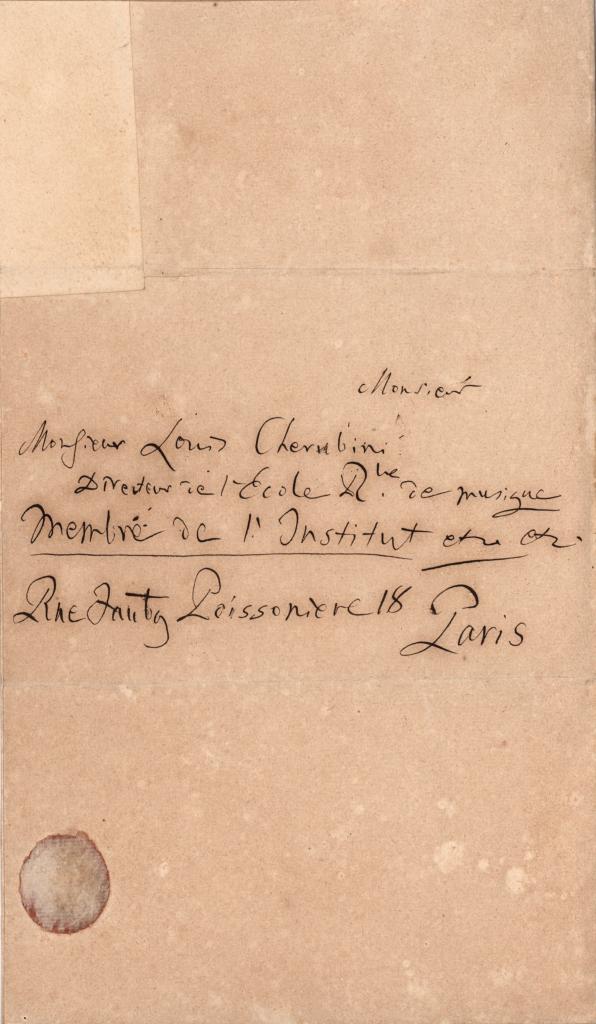 Monsieur
Monsieur Louis Cherubini
Directeur de l'École Rle. de musique
Membre de l'Institut etc etc.
Rue Faubg Poissoniere 18
Paris